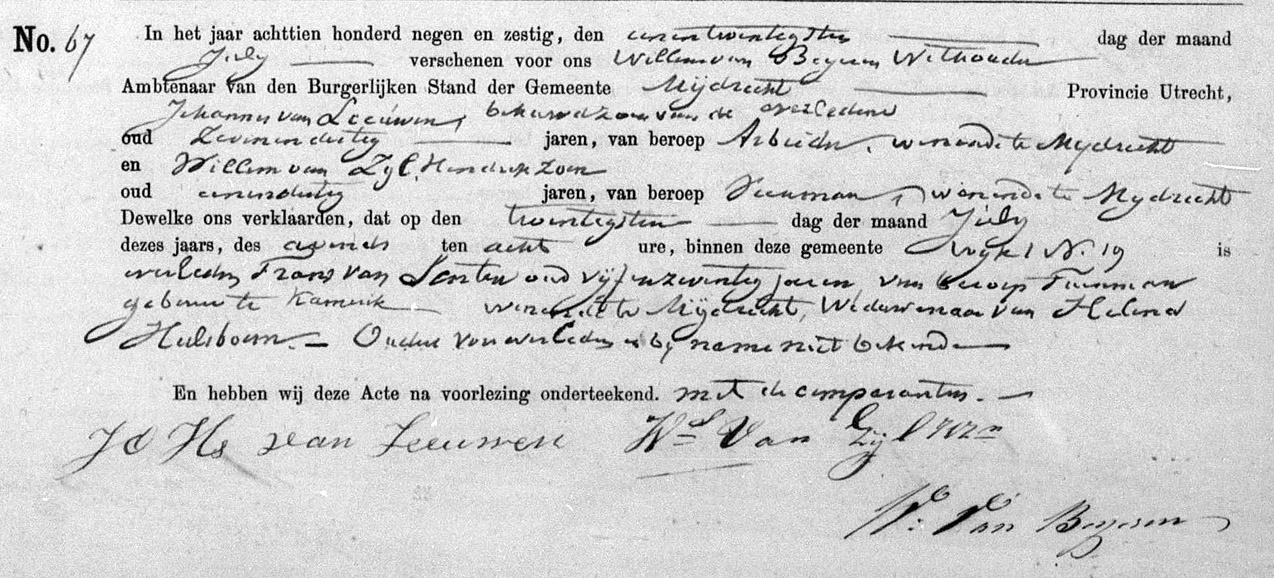 No. 67 In het jaar achttien honderd negen en zestig, den eenentwintigsten dag der maand
July verschenen voor ons Willem van Beijeren Wethouder
Ambtenaar van den Burgerlijken Stand der Gemeente Mijdrecht Provincie Utrecht,
Johannes van Leeuwen, behuwdzoon van de overledene
oud zevenendertig jaren, van beroep Arbeider, wonende te Mijdrecht
en Willem van Zyl, Hendrikzoon
oud eenendertig jaren, van beroep Veenman, wonende te Mijdrecht
Dewelke ons verklaarden, dat op den twintigsten dag der maand July
dezes jaars, des avonds ten acht ure, binnen deze gemeente Wijk 1 N. 19 is
overleden Frans van oud vijfenzeventig jaren, van beroep
geboren te Kamerik wonende te Mijdrecht, Weduwenaar van Helena
Hulsboom. Ouders van overleden is by name niet bekend
En hebben wij deze Acte na voorlezing onderteekend. met de comparanten.
Js Hs van Leeuwen Wm Van Zijl
W: Van Beijeren